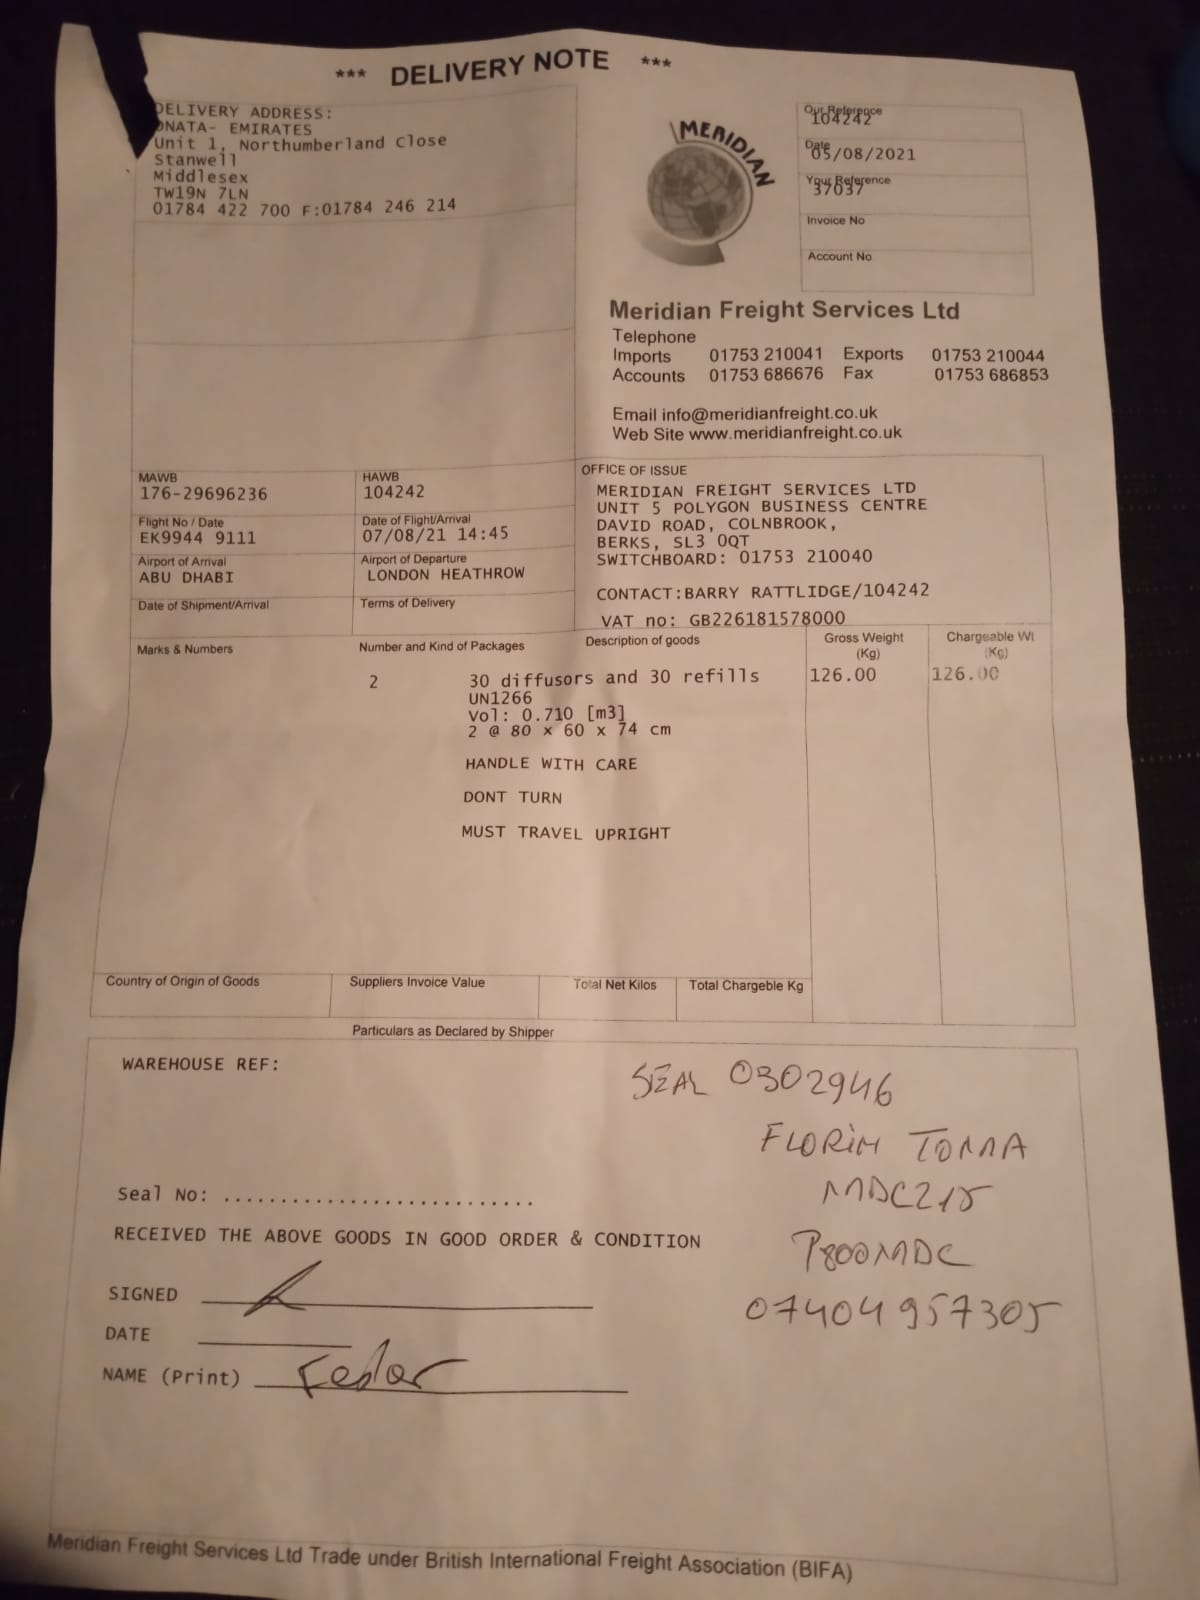 *** DELIVERY NOTE ***
DELIVERY ADDRESS:
DNATA- EMIRATES
Unit 1, Northumberland Close
Stanwell
Middlesex
TW19N 7LN
01784 422 700 F:01784 246 214
MERIDIAN
Our Reference
104242
Date
05/08/2021
Your Reference
37037
Invoice No
Account No
Meridian Freight Services Ltd
Telephone
Imports 01753 210041 Exports 01753 210044
Accounts 01753 686676 Fax 01753 686853
Email info@meridianfreight.co.uk
Web Site www.meridianfreight.co.uk
MAWB
176-29696236
HAWB
104242
Flight No / Date
EK9944 9111
Date of Flight/Arrival
07/08/21 14:45
Airport of Arrival
ABU DHABI
Airport of Departure
LONDON HEATHROW
Date of Shipment/Arrival
Terms of Delivery
OFFICE OF ISSUE
MERIDIAN FREIGHT SERVICES LTD
UNIT 5 POLYGON BUSINESS CENTRE
DAVID ROAD, COLNBROOK,
BERKS, SL3 0QT
SWITCHBOARD: 01753 210040
CONTACT:BARRY RATTLIDGE/104242
VAT no: GB226181578000
Marks & Numbers
Number and Kind of Packages
Description of goods
Gross Weight
(Kg)
Chargeable Wt
(Kg)
2 30 diffusors and 30 refills 126.00 126.00
UN1266
Vol: 0.710 [m3]
2 @ 80 x 60 x 74 cm
HANDLE WITH CARE
DONT TURN
MUST TRAVEL UPRIGHT
Country of Origin of Goods
Suppliers Invoice Value
Total Net Kilos
Total Chargeble Kg
Particulars as Declared by Shipper
WAREHOUSE REF:
SEAL 0302946
FLORIN TOMA
MDC215
P800MDC
07404957305
Seal No: ............................
RECEIVED THE ABOVE GOODS IN GOOD ORDER & CONDITION
SIGNED
DATE
NAME (Print) Fedor
Meridian Freight Services Ltd Trade under British International Freight Association (BIFA)